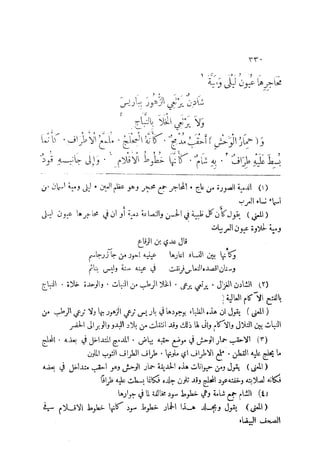 ٣٣٠
محاجرها عيون ليلى ومية ١
شادن يرتعي الزهور بباريس
ولا يرتعي الخلا بالنباج ٢
و (حمار الوحش) أحقب مدمج . كأنه المحلج . ملمع الأطراف . كأنما
بسط عليه طراف ٣ . به شام . كأنها خطوط الأقلام ٤ . وإلى جانبه فود
(١) الدمية الصورة من عاج . المحاجر جمع محجر وهو عظم العين . ليلى ومية اسمان من
اسماء نساء العرب
(المعنى) يقول كأن كل ظبية في الحسن والنصاعة دمية أو ان في محاجرها عيون ليلى
ومية لحلاوة عيون العربيات
قال عدي بن الرقاع
وكأنها بين النساء اعارها عينيه احور من جآذر جاسم
وسنان اقصده النعاس فرنقت في عينه سنة وليس بنائم
(٢) الشادن الغزال . يرتعي يرعى . الخلا الرطب من النبات . والوحدة خلاة . النباج
بالفتح الآكام العالية
(المعنى) يقول ان هذه الظباء بوجودها في باريس ترعى الزهور بها ولا ترعى الرطب من
النبات بين التلال والآكام وأنى لها ذلك وقد انتقلت من بلاد البدو والوبر الى الحضر
(٣) الاحقب حمار الوحش في موضع حقبه بياض . المدمج المتداخل في بعضه . المحلج
ما يحلج عليه القطن . ملمع الاطراف اي ملونها . طراف الطراف الثوب الملون
(المعنى) يقول ومن حيوانات هذه الحديقة حمار الوحش وهو احقب متداخل في بعضه
فكأنه لصلابته وخفته عود المحلج وقد تلون جلده فكأنما بسطت عليه طرافا
(٤) الشام جمع شامة وهي خطوط سود مخالفة لما في جوارها
(المعنى) يقول وبجلد هذا الحمار خطوط سود كأنها خطوط الاقلام في
الصحف البيضاء